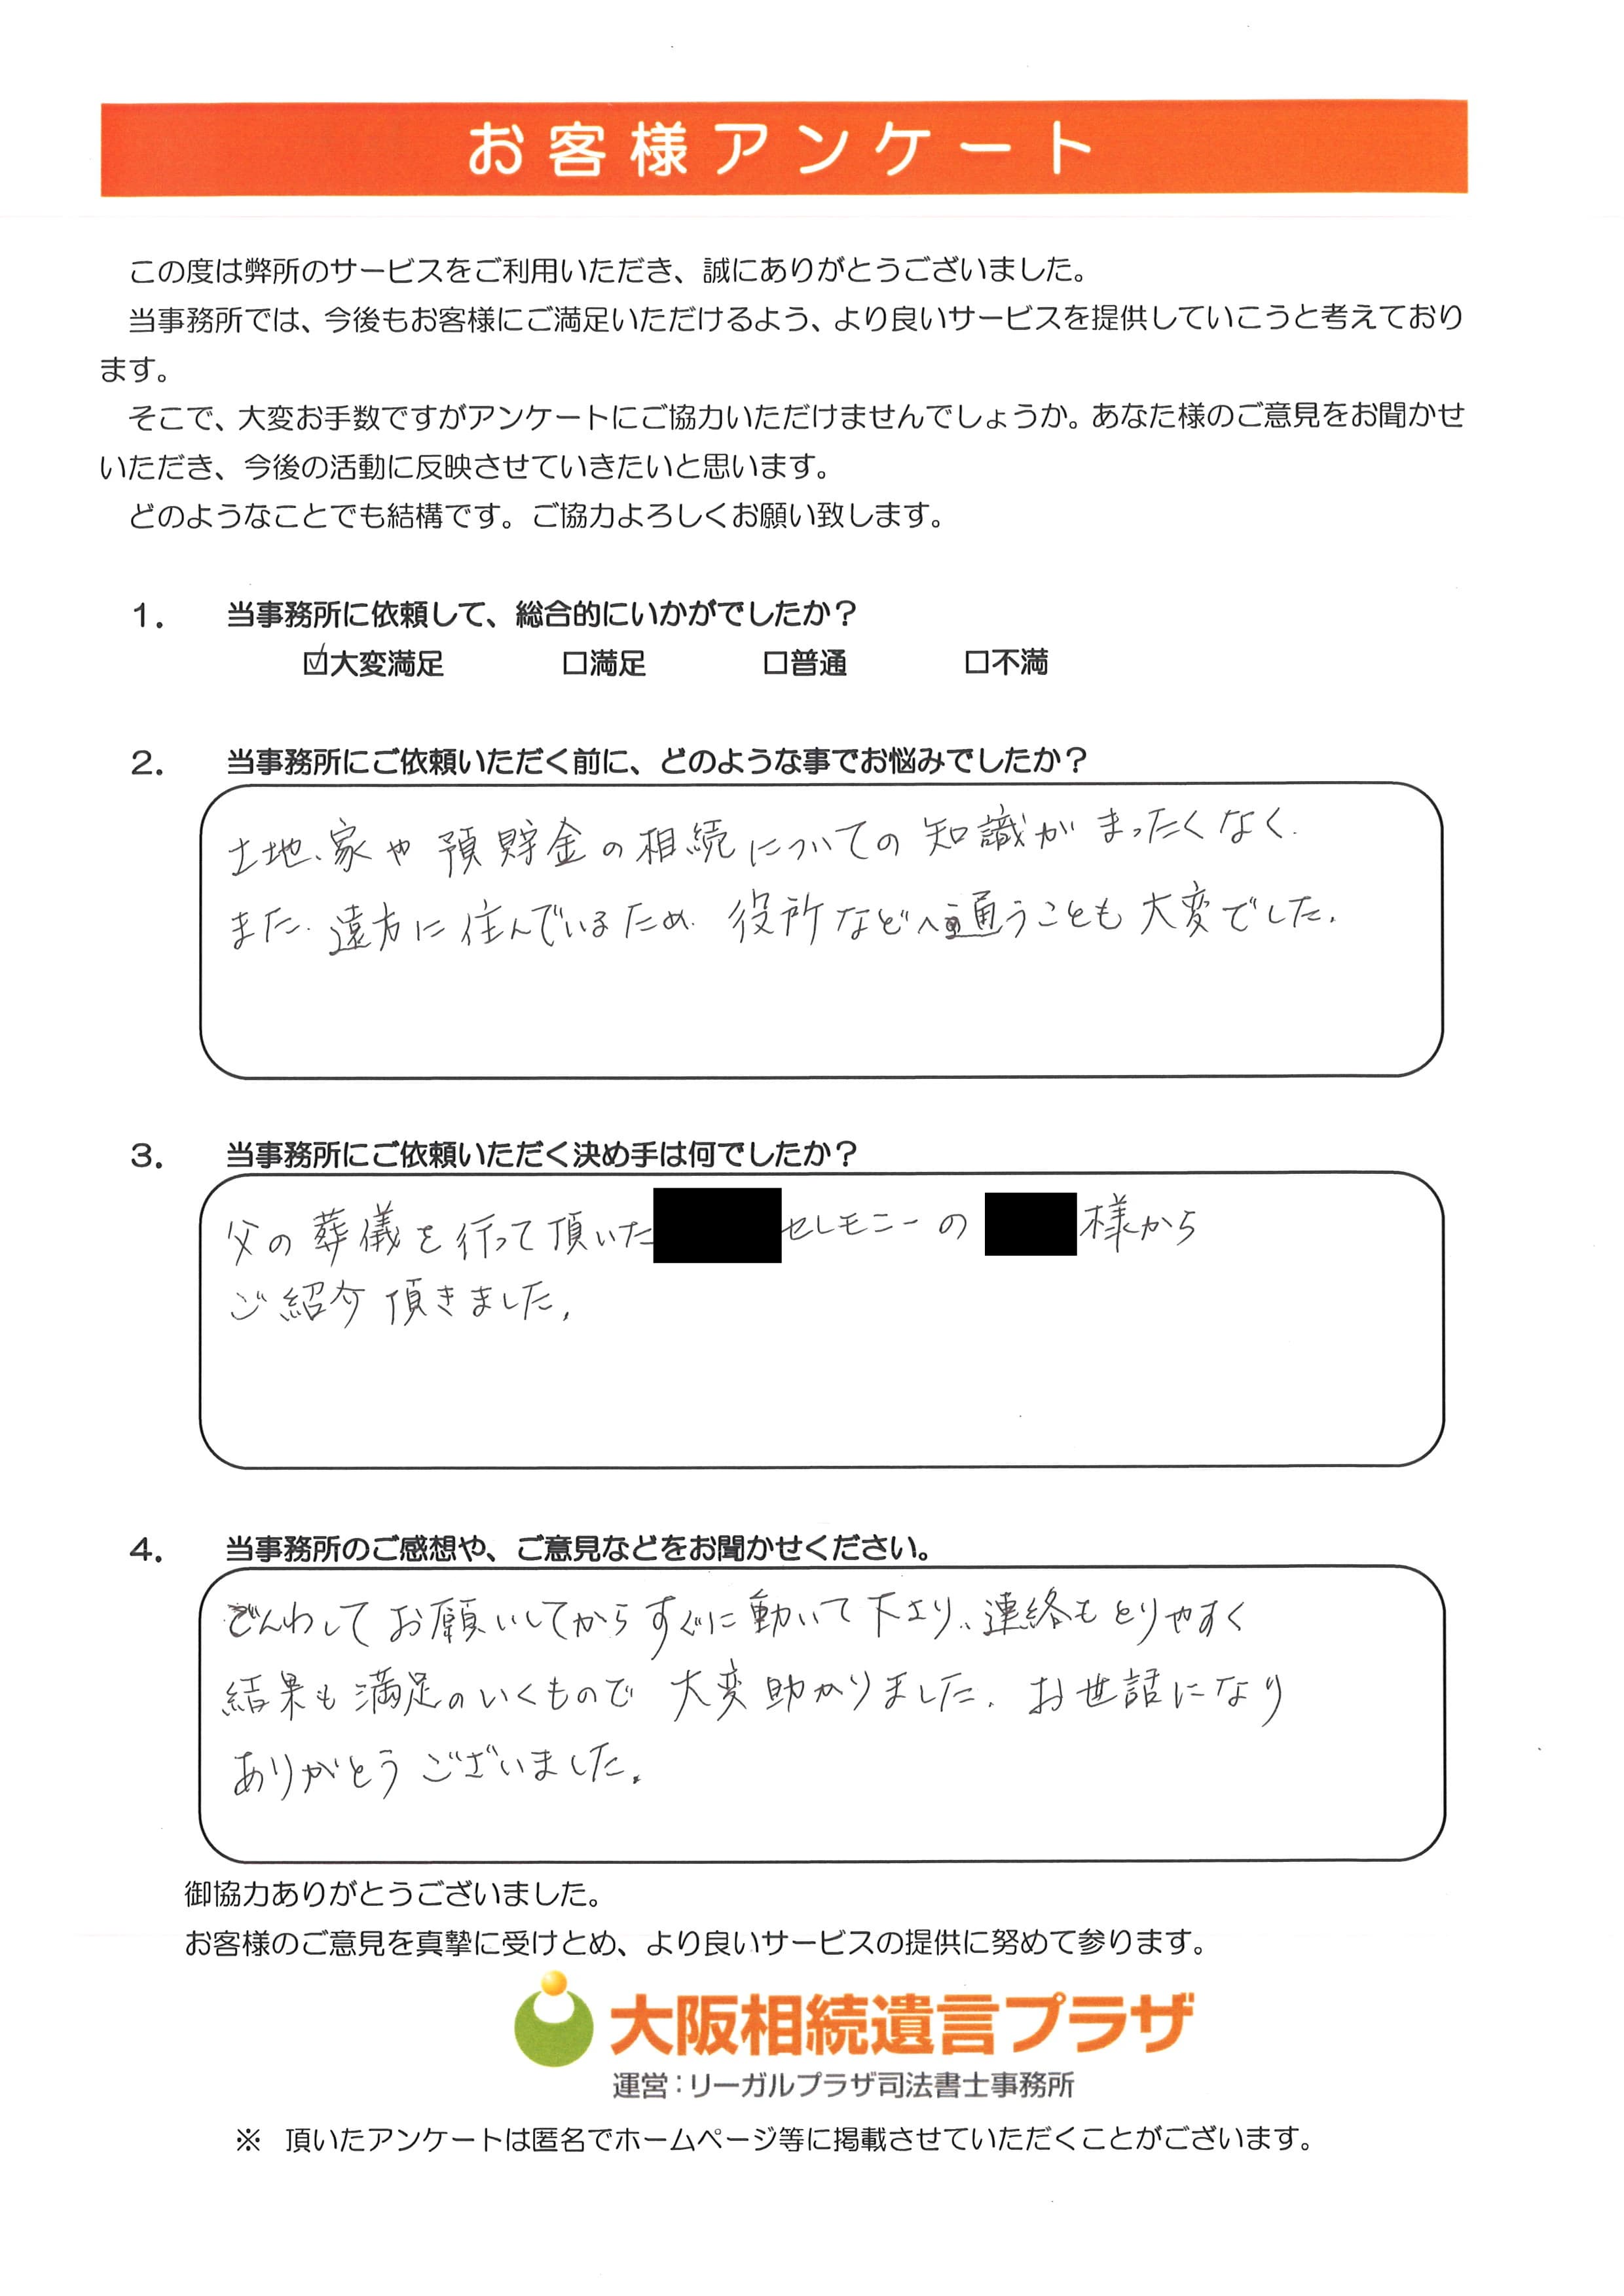 お客様アンケート
この度は弊所のサービスをご利用いただき、誠にありがとうございました。
当事務所では、今後もお客様にご満足いただけるよう、より良いサービスを提供していこうと考えており
ます。
そこで、大変お手数ですがアンケートにご協力いただけませんでしょうか。あなた様のご意見をお聞かせ
いただき、今後の活動に反映させていきたいと思います。
どのようなことでも結構です。ご協力よろしくお願い致します。
1. 当事務所に依頼して、総合的にいかがでしたか？
☑大変満足 □満足 □普通 □不満
2. 当事務所にご依頼いただく前に、どのような事でお悩みでしたか？
土地、家や預貯金の相続についての知識がまったくなく、
また、遠方に住んでいるため、役所などへ通うことも大変でした。
3. 当事務所にご依頼いただく決め手は何でしたか？
父の葬儀を行って頂いた セレモニーの 様から
ご紹介頂きました。
4. 当事務所のご感想や、ご意見などをお聞かせください。
でんわしてお願いしてからすぐに動いて下さり、連絡もとりやすく
結果も満足のいくもので大変助かりました。お世話になり
ありがとうございました。
御協力ありがとうございました。
お客様のご意見を真摯に受けとめ、より良いサービスの提供に努めて参ります。
大阪相続遺言プラザ
運営：リーガルプラザ司法書士事務所
※ 頂いたアンケートは匿名でホームページ等に掲載させていただくことがございます。